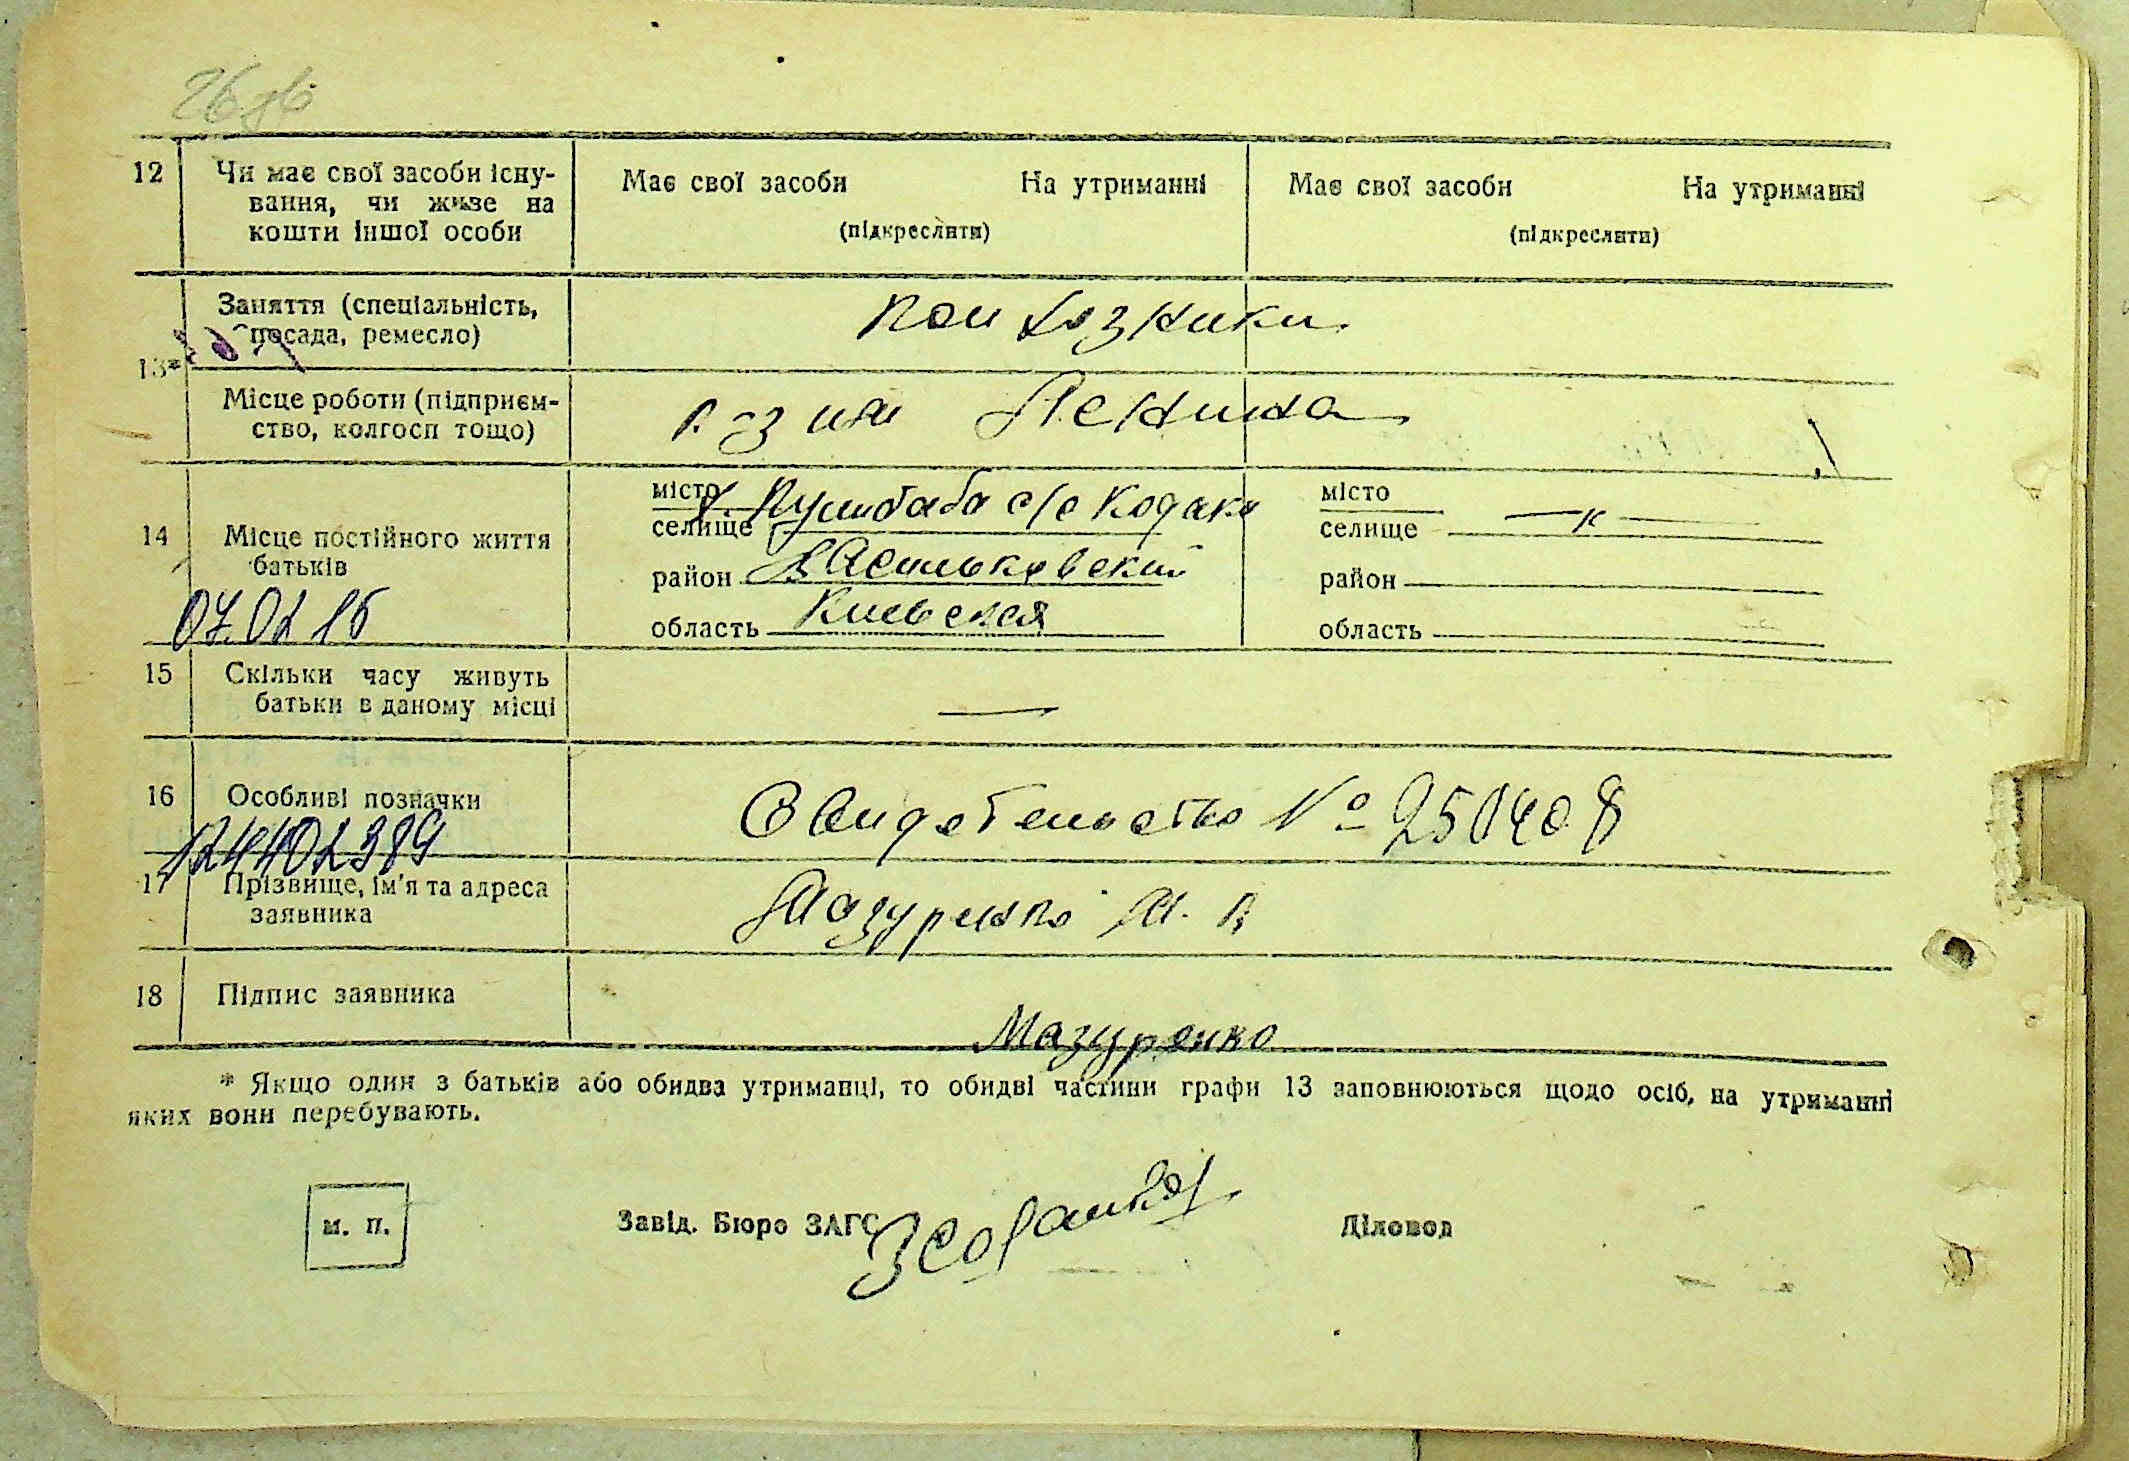 12 Чи має свої засоби існу- Має свої засоби На утриманні Має свої засоби На утриманні
вання, чи живе на
кошти іншої особи (підкреслити) (підкреслити)
Заняття (спеціальність,
посада, ремесло)
13*
Місце роботи (підприєм- им Ленина
ство, колгосп тощо)
місто с/с Кодаки місто
14 Місце постійного життя селище селище
батьків район Васильковский район
07.02 16 область Киевская область
15 Скільки часу живуть —
батьки в даному місці
16 Особливі позначки Свидетельство №
124402389
17 Прізвище, ім'я та адреса Мазуренко М.
заявника
18 Підпис заявника Мазуренко
* Якщо один з батьків або обидва утриманці, то обидві частини графи 13 заповнюються щодо осіб, на утриманні
яких вони перебувають.
м. п. Завід. Бюро ЗАГС Діловод